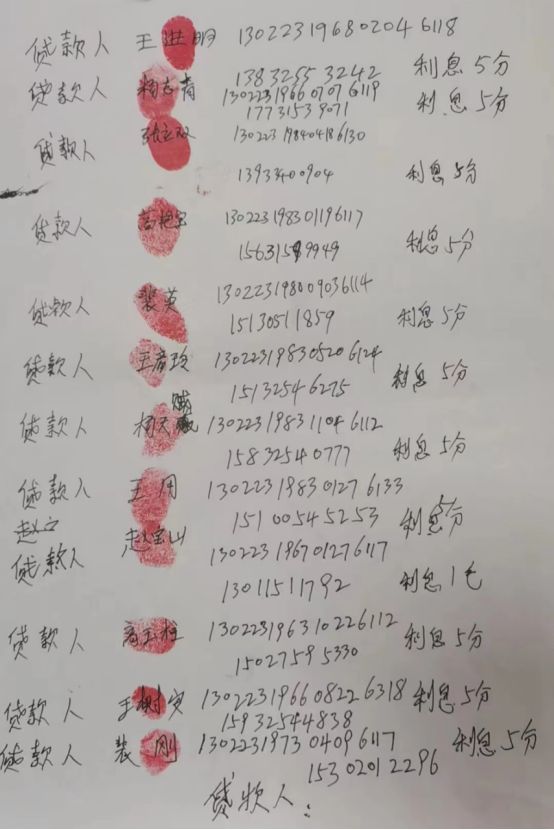 贷款人 王进明 130223196802046118
1383255 3242 利息5分
贷款人 杨志青 130223196607076119
17731539071 利息5分
贷款人 张立双 130223198404186130
1393400904 利息5分
贷款人 高艳宝 130223198301196117
15631599949 利息5分
贷款人 裴英 130223198009036114
15130511859 利息5分
贷款人 王彦玲 130223198305206124
15132546275 利息5分
贷款人 杨天 130223198311046112
15832540777 利息5分
贷款人 王用 130223198301276133
15100545253 利息5分
赵立
贷款人 赵宝山 130223196701276117
13011511792 利息1毛
贷款人 高玉柱 130223196310226112
15027595330 利息5分
贷款人 王树安 130223196608226318 利息5分
15932544838
贷款人 裴刚 130223197304096117 利息5分
15302012296
贷款人：